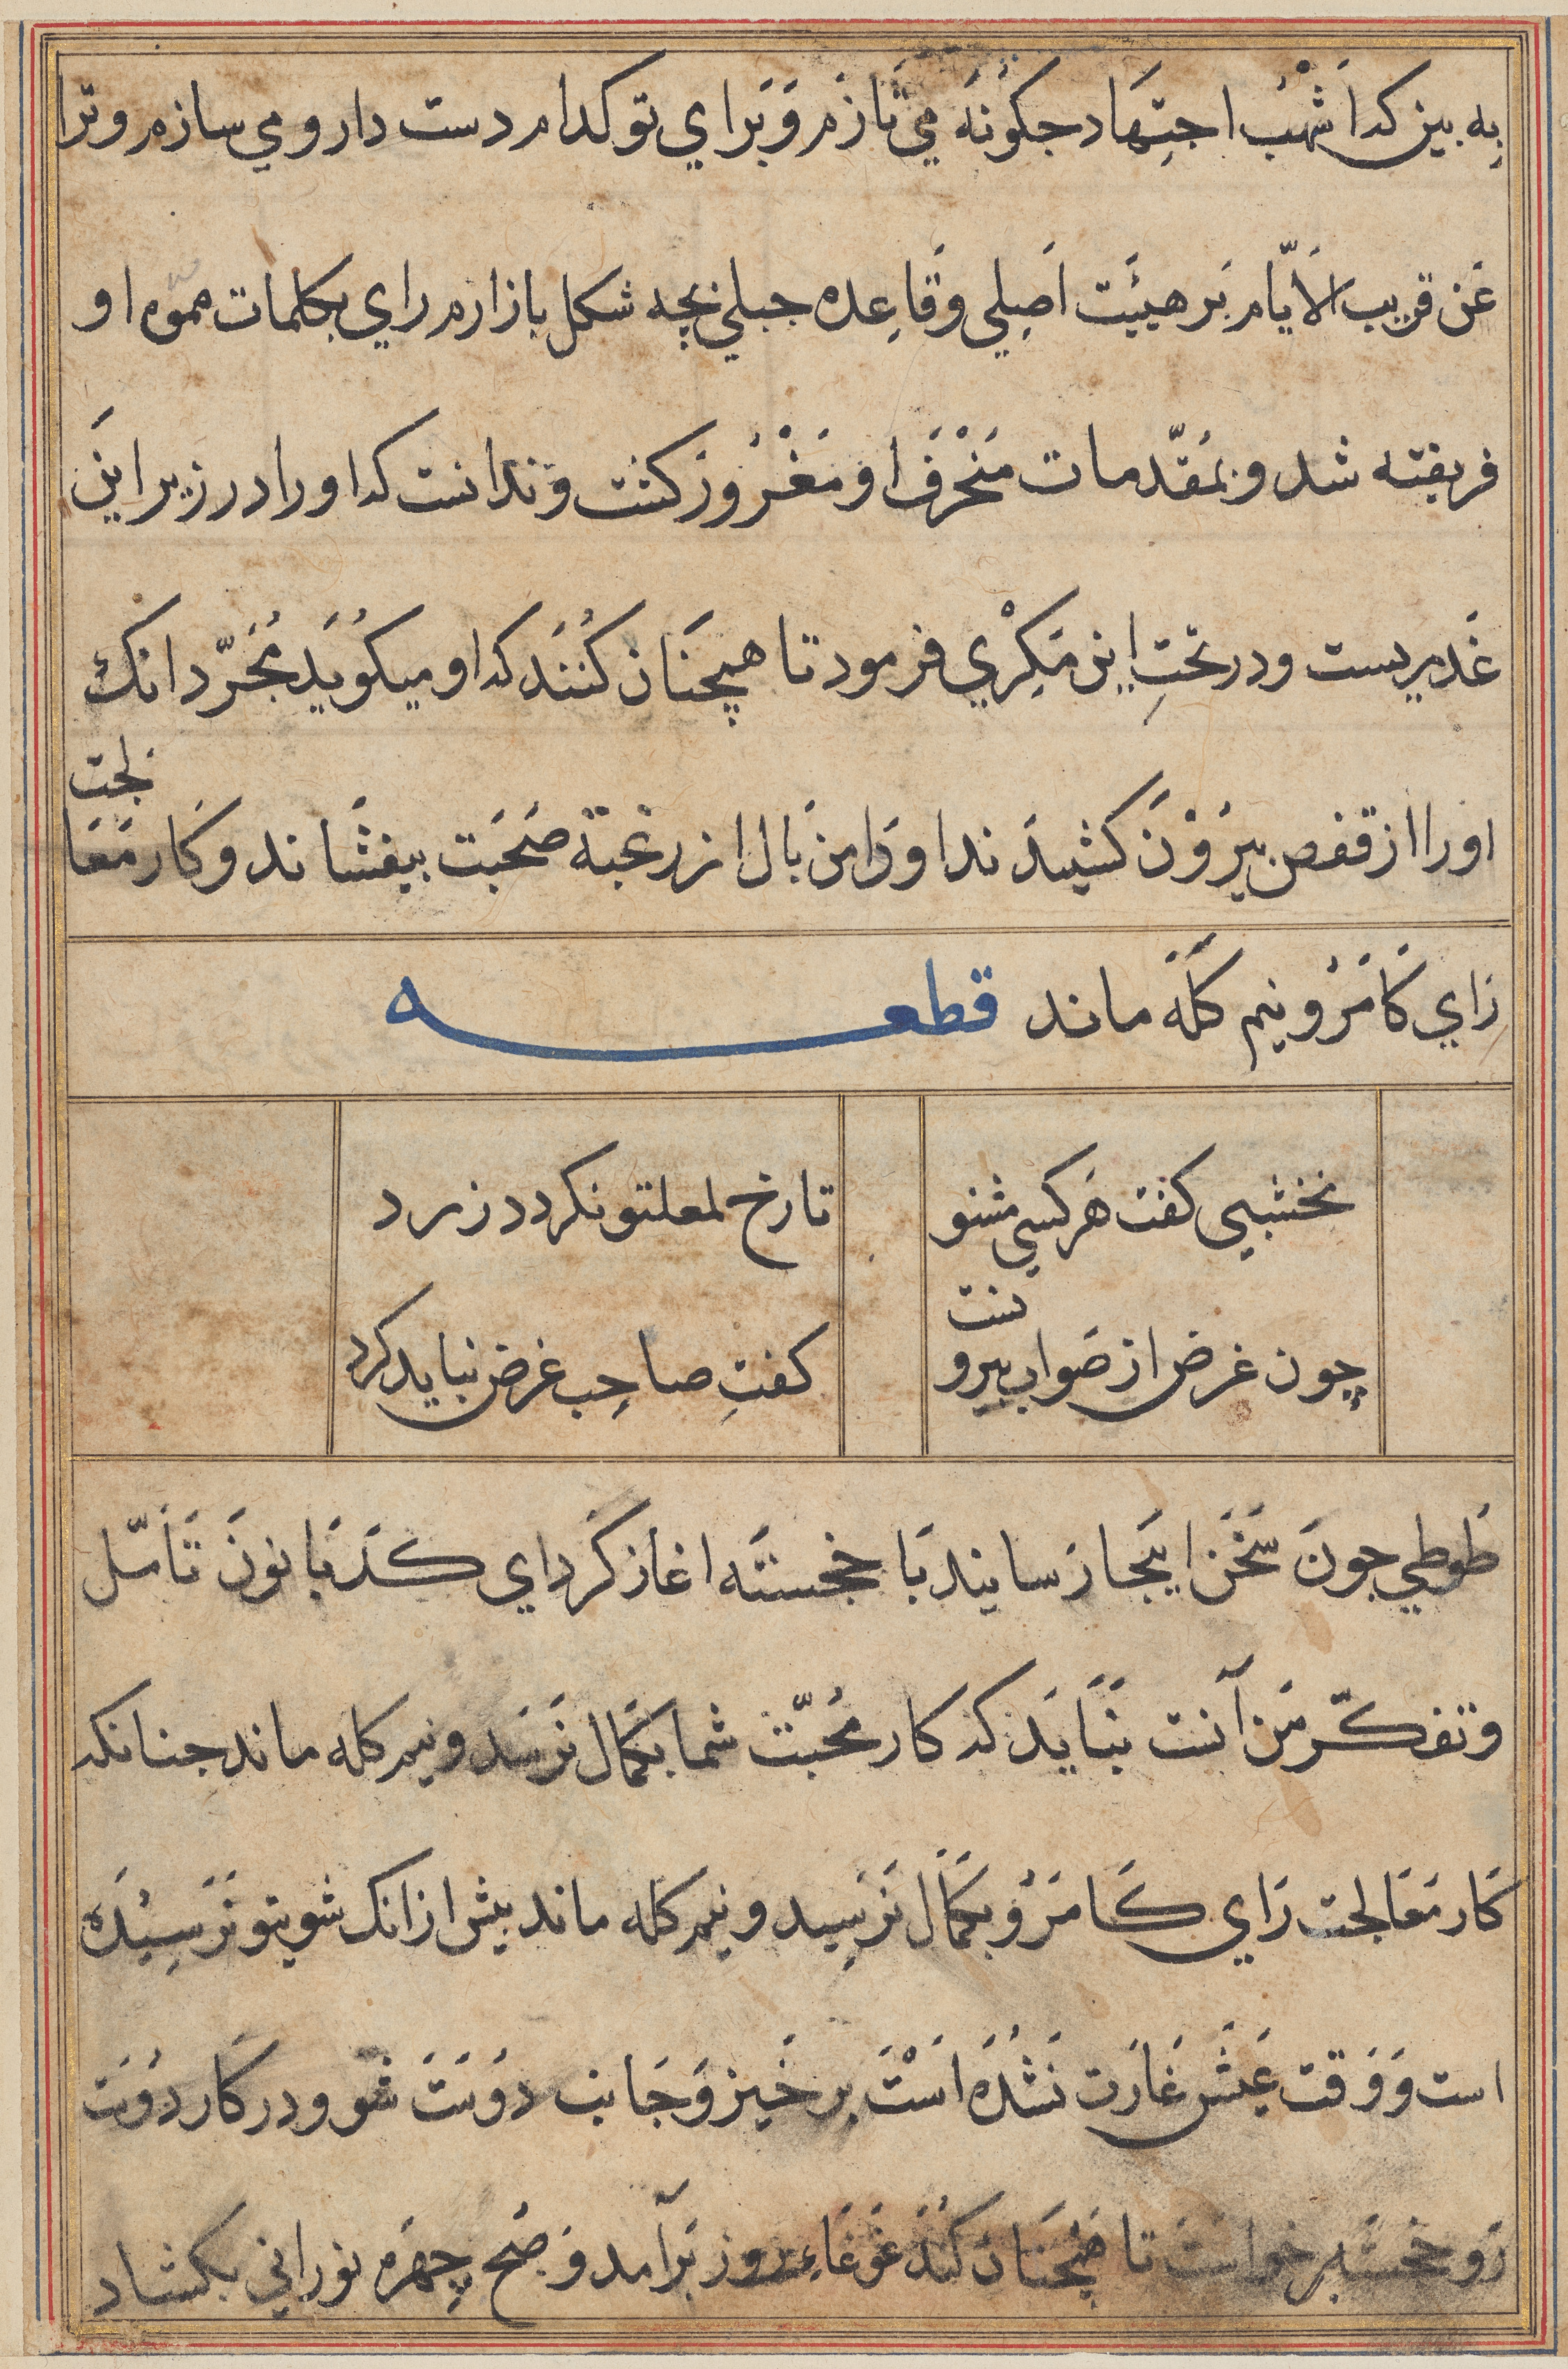 به بین که اَشْهَب اجتِهَاد جکُونَه می تَازَم وَ بَرَای تو کدام دست دارو می سازم و ترا
عَن قریب الاَیّام بَر هیئَت اَصِلی وَ قَاعِده جبلی بچه شکل باز ارم رای بکلمات مموه او
فریفته شد و بمُقَدّمات مَنْحَرفَ او مَغْرُوز کشت و ندانست که اورا در زیر این
غَدیریست و در تحتِ این مَکِرْی فرمود تا هیچَنَان کُنَند که او میکُویَد بُمجَرّد انک
اورا از قفص بیَرُوْن کشیدَند او دَامن بَال از رغبة صَحَبَت بیفشَاند و کَار مَعَا
لجت
رَای کَامَرُو نیم کلَه ماند قطعه
نخشبی کفت هَر کسی مشنو
تا رخ لعلتو نکردد زرد
چون غرض از صَواب بیرو
نست
کفتِ صاحِب غرض نباید کرد
طَوطی جونَ سَخَن اینجا رَسانید بَا خجستَه اغاز کَرد ای کَدبَانونَ تَاَمّل
و تفکّر مَن آنست نَبَایَد که کار مُحَبّت شما بکَمَال نَرسَد و نیم کله ماند جنانکه
کَار مَعَالجت رَای کَامَرُو بکَمَال نَرَسِید و نیم کله ماند بیش از انک شویتو نَرَسِیْدَه
است وَ وَقت عَیش غَارَت نَشُدَه اَسْتَ بر خَیز وَ جَانب دوُستَ شو و در کَار دوُست
رَو خجستَه برخواست تا همجَنَان کُنَد غَوغَاءِ روز بَرآمد وَ صَبح چِهرَه نورانی بکشاد